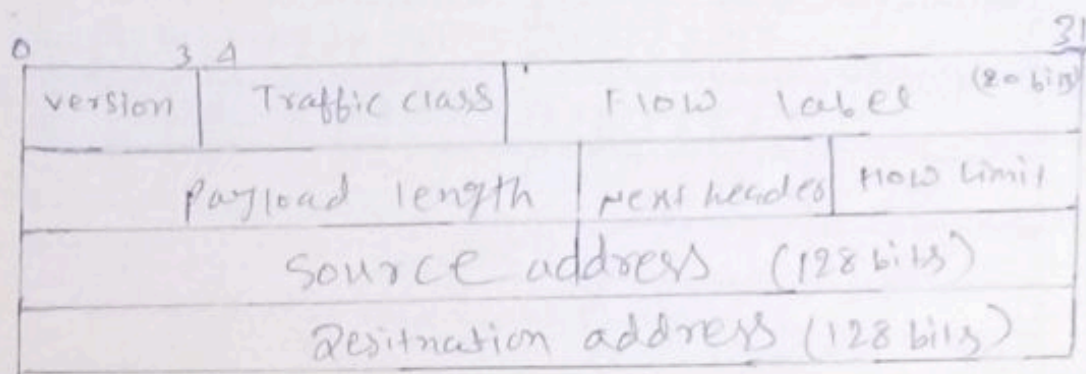 0 3 4 31
version Traffic class Flow label (20 bits)
Payload length Next header Flow Limit
Source address (128 bits)
Desitnation address (128 bits)